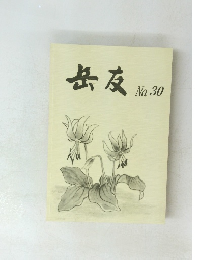 岳友 No.30